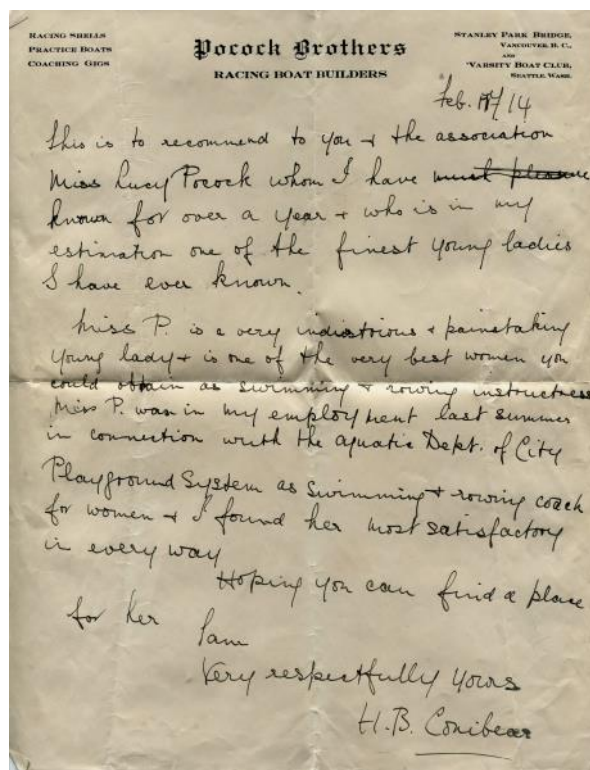 RACING SHELLS
PRACTICE BOATS
COACHING GIGS
Pocock Brothers
RACING BOAT BUILDERS
STANLEY PARK BRIDGE,
VANCOUVER, B. C.,
AND
'VARSITY BOAT CLUB,
SEATTLE, WASH.
Feb. /14
This is to recommend to you + the association
Miss Lucy Pocock whom I have much pleasure
known for over a year + who is in my
estimation one of the finest young ladies
I have ever known.
Miss P. is a very industrious + painstaking
young lady + is one of the very best women you
could obtain as swimming + rowing instructress
Miss P. was in my employment last summer
in connection with the aquatic Dept. of City
Playground System as swimming + rowing coach
for women + I found her most satisfactory
in every way
Hoping you can find a place
for her
I am
Very respectfully yours
H.B. Conibear